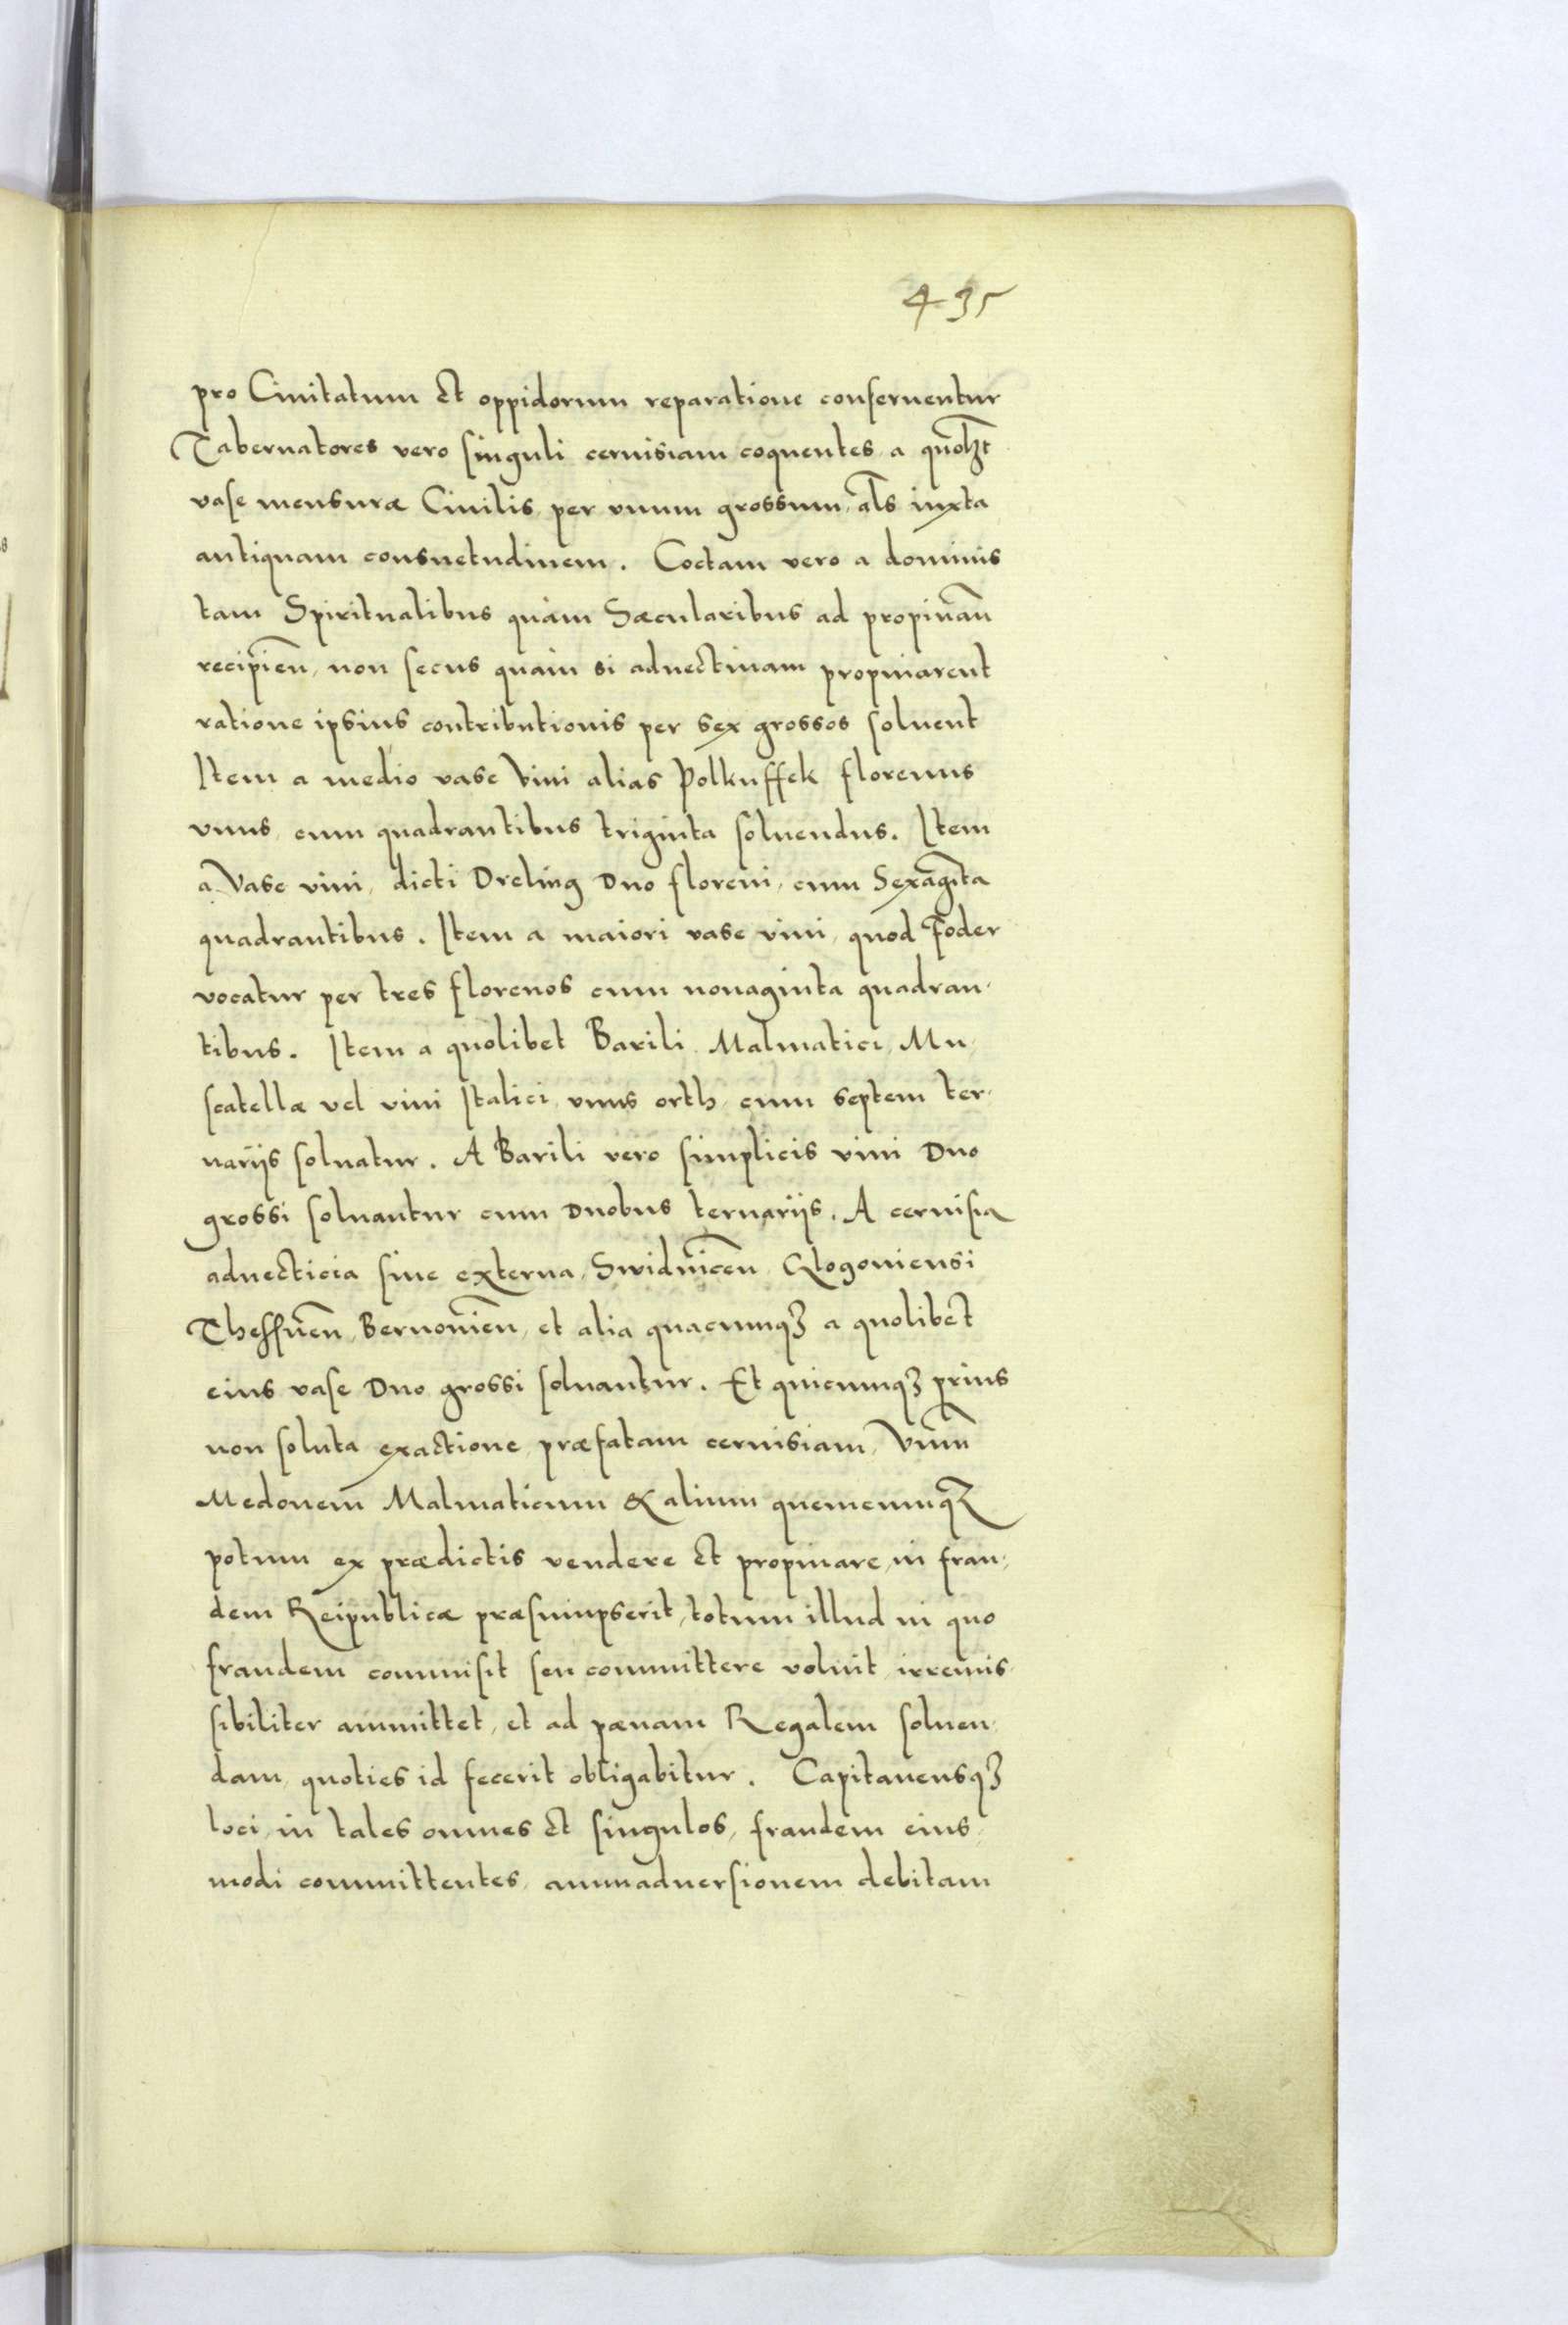 435
pro Ciuitatum et oppidorum reparatione conseruentur
Tabernatores vero singuli ceruisiam coquentes, a quolzt
vase mensuræ Ciuilis, per vnum grossum, als iuxta
antiquam consuetudinem. Coctam vero a dominis
tam Spiritualibus quàm Sæcularibus ad propinan̄
recipien̄, non secus quàm si aduectinam propinarent
ratione ipsius contributionis per sex grossos soluent
Item a medio vase Vini alias Polkuffek florenus
vnus cum quadrantibus triginta soluendus. Item
a Vase vini, dicti Dreling Duo floreni, cum Sexagīta
quadrantibus. Item a maiori vase vini, quod Foder
vocatur per tres florenos cum nonaginta quadran-
tibus. Item a quolibet Barili Malmatici, Mu-
scatellæ vel vini Italici, vnus orth, cum septem ter-
narijs soluatur. A Barili vero simplicis vini Duo
grossi soluantur cum Duobus ternarijs. A ceruisia
aduecticia siue externa, Swidnicen̄ Glogoniensi
Thessnen̄, Bernouien̄, et alia quacunqꝫ a quolibet
eius vase Duo grossi soluantur. Et quicunqꝫ prius
non soluta exactione, præfatam ceruisiam, Vinū
Medonem Malmaticum & alium quemcunqꝫ
potum ex prædictis vendere et propinare, in frau-
dem Reipublicæ præsumpserit, totum illud in quo
fraudem commisit seu committere voluit, irremis-
sibiliter ammittet, et ad pænam Regalem soluen-
dam, quoties id fecerit obligabitur. Capitaneusqꝫ
loci, in tales omnes et singulos, fraudem eius-
modi committentes, animaduersionem debitam